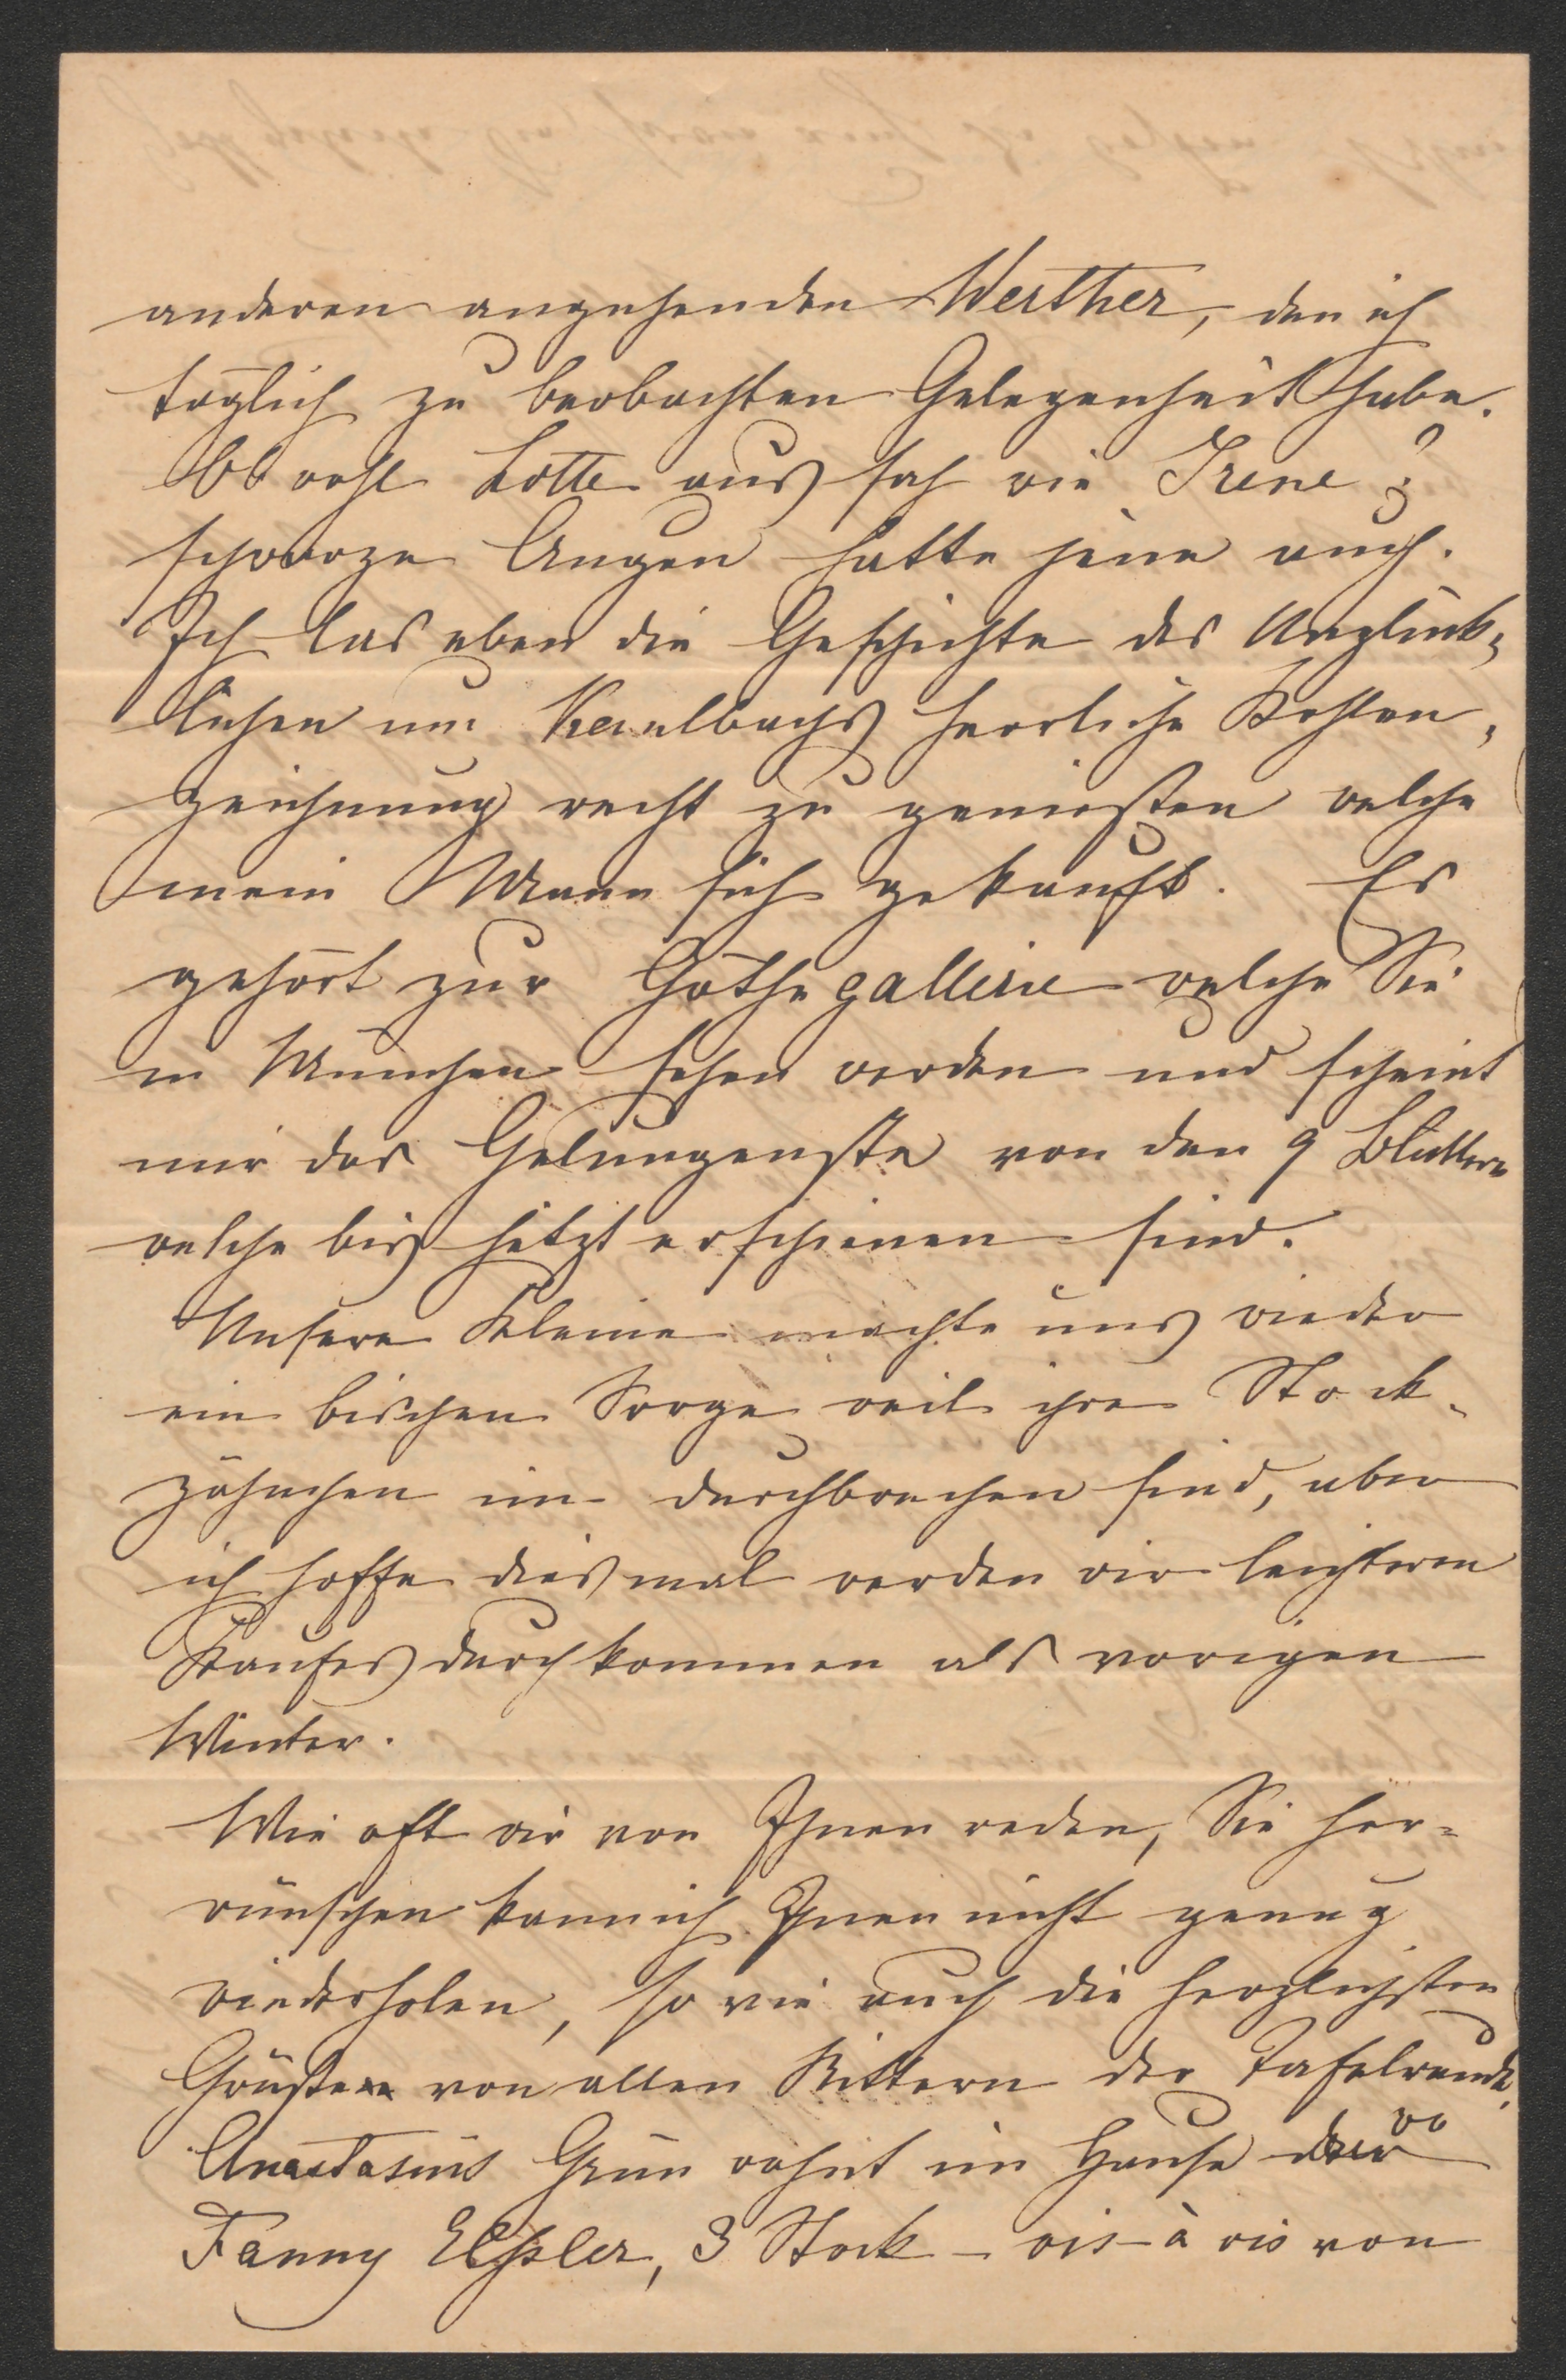 anderen angehenden Werther, den ich
täglich zu beobachten Gelegenheit habe.
Ob wohl Lotte aus sah wie Irene?
schwarze Augen hatte jene auch.
Ich las eben die Geschichte des Unglück-
lichen um Kaulbachs herrliche Kohlen-
zeichnung recht zu genießen welche
mein Mann sich gekauft. Es
gehört zur Göthegallerie welche Sie
in München sehen werden und scheint
mir das Gelungenste von den 9 Blättern
welche bis jetzt erschienen sind.
Unsere Kleine machte uns wieder
ein bischen Sorge weil ihre Stock-
zähnchen im durchbrechen sind, aber
ich hoffe diesmal werden wir leichteren
Kaufes durchkommen als vorigen
Winter.
Wie oft wir von Ihnen reden, Sie her-
wünschen kann ich Ihnen nicht genug
wiederholen, so wie auch die herzlichsten
Grüße von allen Rittern der Tafelrunde.
Anastasius Grün wohnt im Hause wo
Fanny Elßler, 3 Stock – vis-à vis von